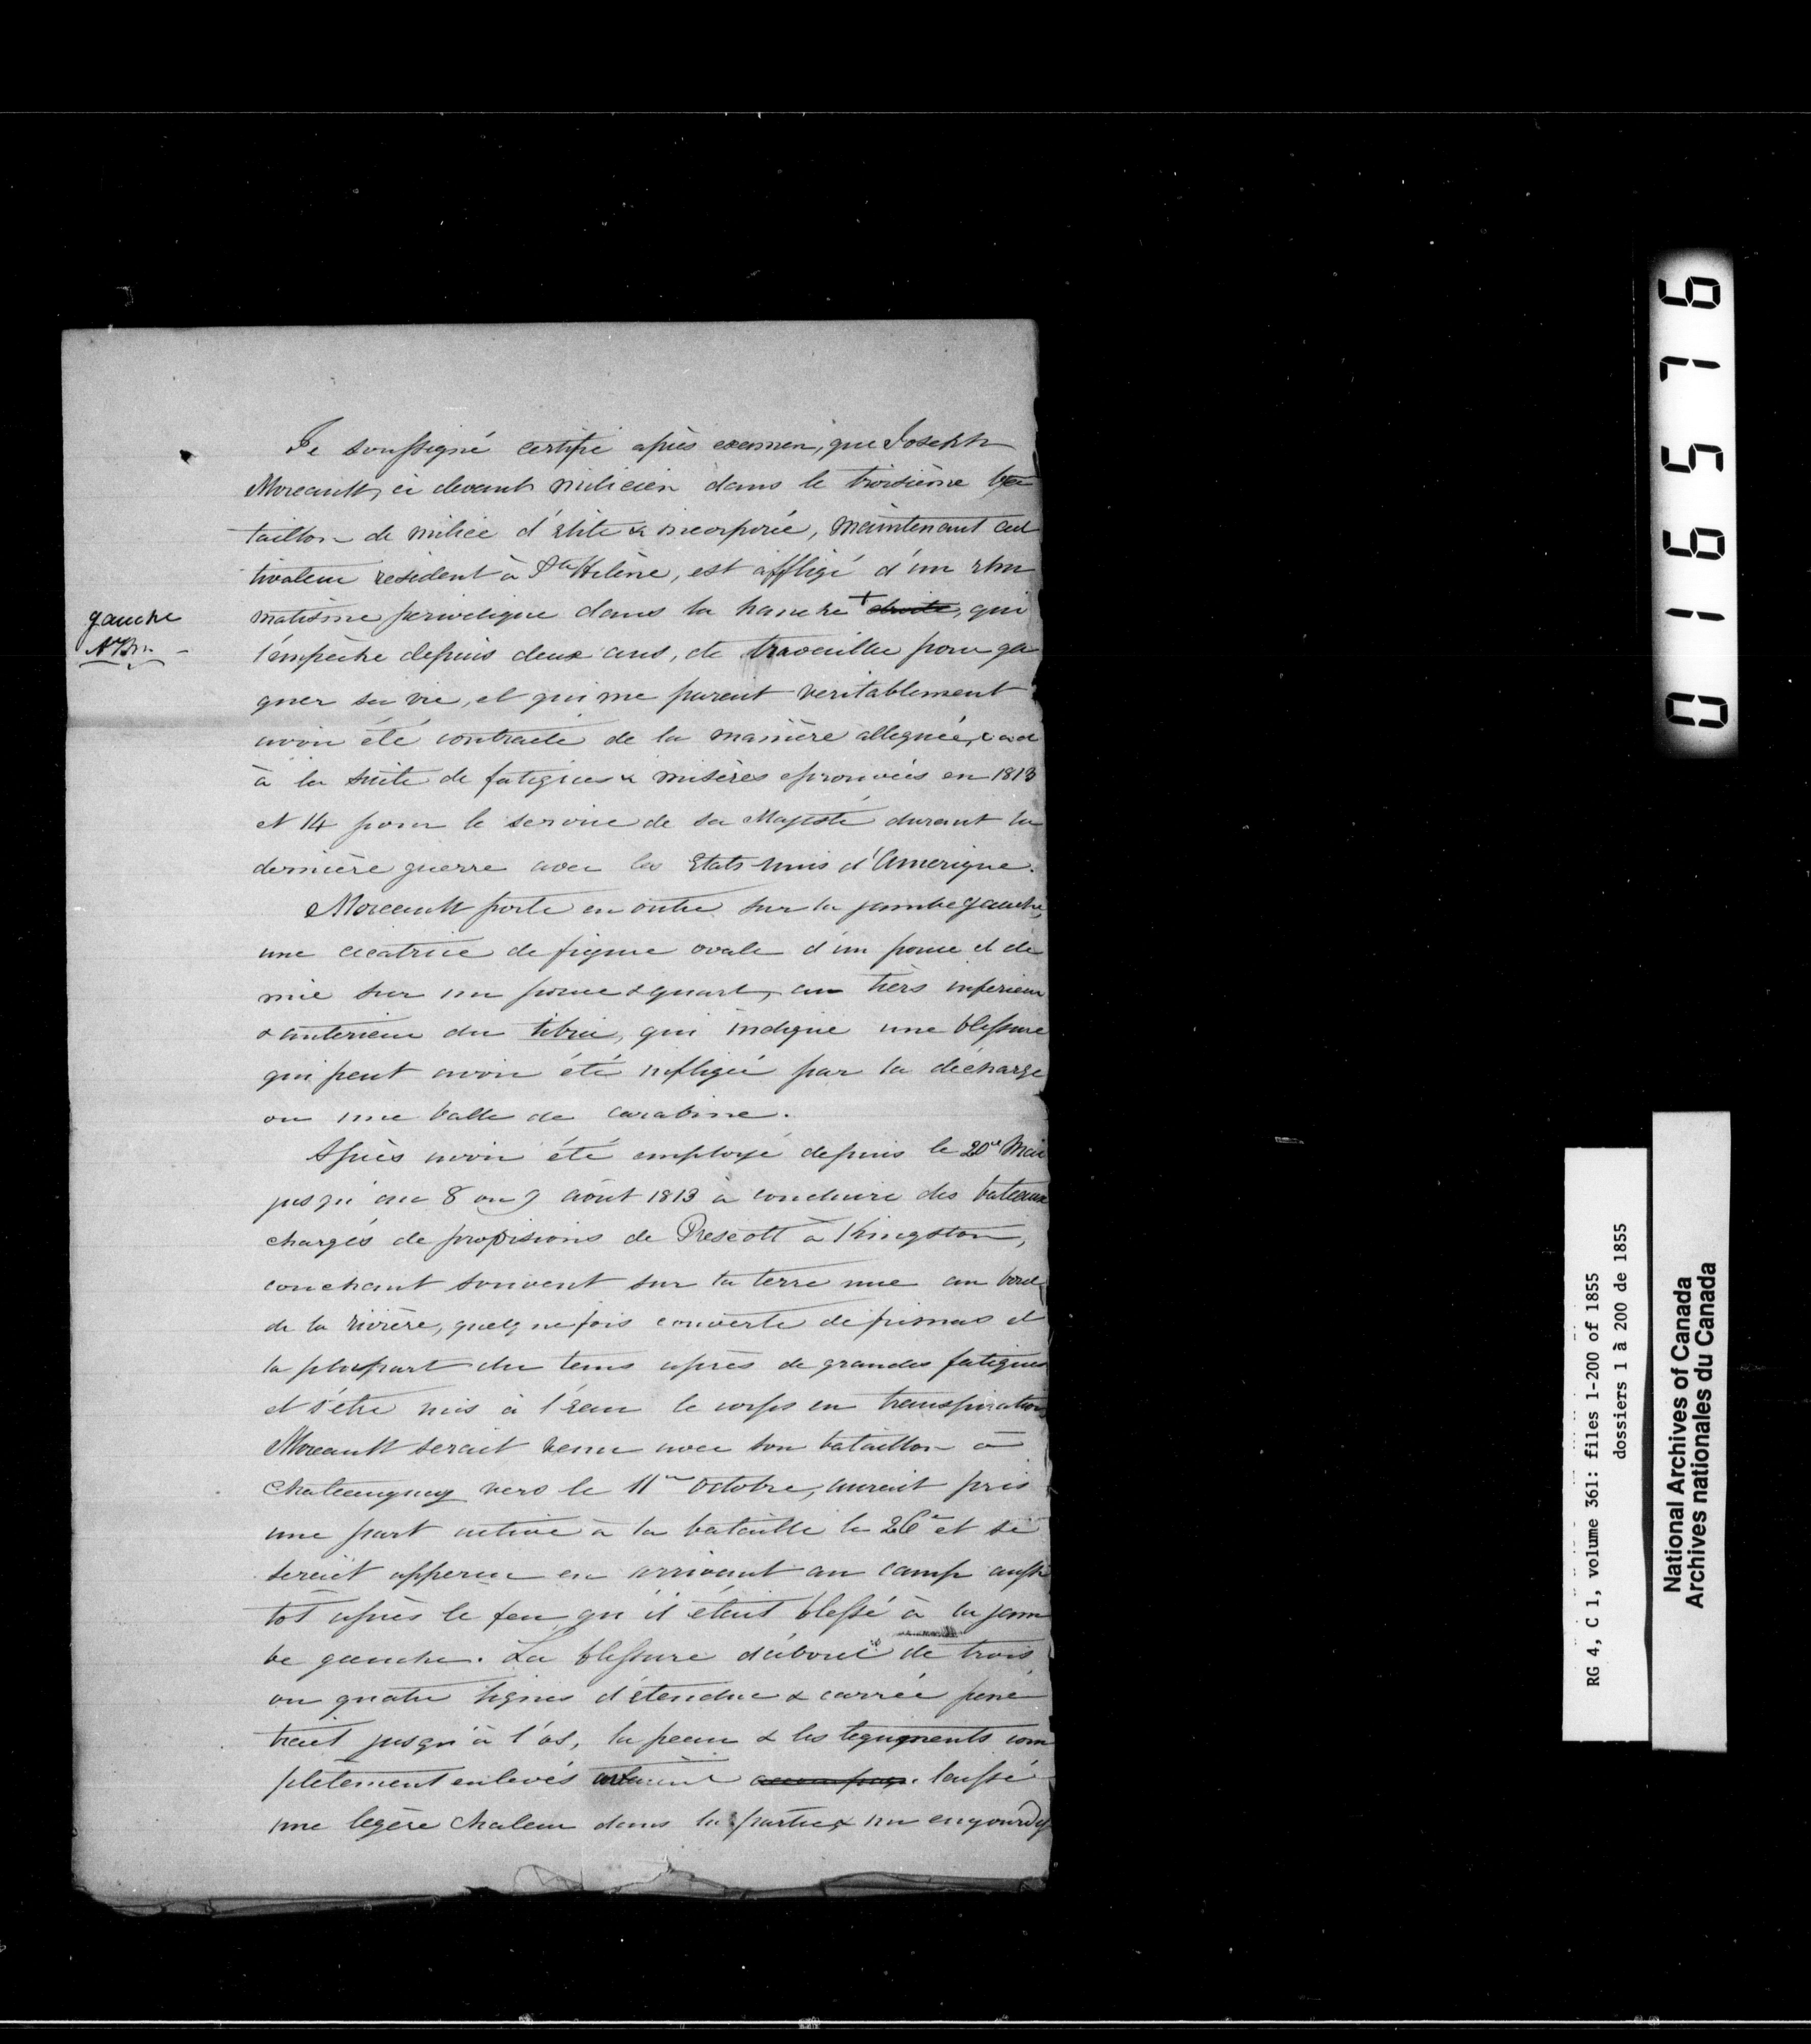 Je soussigné certifie après examen, que Joseph
Moreault, ci devant milicien dans le troisième ba
taillon de milice d'élite & incorporée, maintenant cul
tivateur resident à Ste Hélène, est affligé d'un rhu
matisme periodique dans la hanche + droite, qui
gauche
l'empêche depuis deux ans, de travailler pour ga
gner sa vie, et qui me parait veritablement
avoir été contracté de la manière alleguée, c a d
à la suite de fatigues & misères eprouvées en 1813
et 14 pour le service de sa Majesté durant la
dernière guerre avec les Etats-unis d'Amerique.
Moreault porte en outre sur la jambe gauche,
une cicatrice de figure ovale d'un pouce et de
mie sur un pouce & quart, au tiers inferieur
& anterieur du tibia, qui indique une blessure
qui peut avoir été infligée par la décharge
ou une balle de carabine.
Après avoir été employé depuis le 20e Mai
jusqu'au 8 ou 9 août 1813 à conduire des bateaux
chargés de provisions de Prescott à Kingston,
couchant souvent sur la terre nue au bord
de la rivière, quelquefois couverte de frimas et
la plupart du tems après de grandes fatigues
et s'être mis à l'eau le corps en transpiration
Moreault serait venu avec son bataillon à
Chateauguay vers le 11e octobre, aurait pris
une part active à la bataille le 26e et se
serait apperçu en arrivant au camp aussi
tôt après le feu qu'il était blessé à la jam
be gauche. La blessure d'abord de trois
ou quatre lignes d'étendue & carrée péné
trait jusqu'à l'os, la peau & les teguments com
pletement enlevés avaient laissé
une legère chaleur dans la partie & un engourdis
0 1 6 5 7 6
RG 4, C 1, volume 361: files 1-200 of 1855
dossiers 1 à 200 de 1855
National Archives of Canada
Archives nationales du Canada